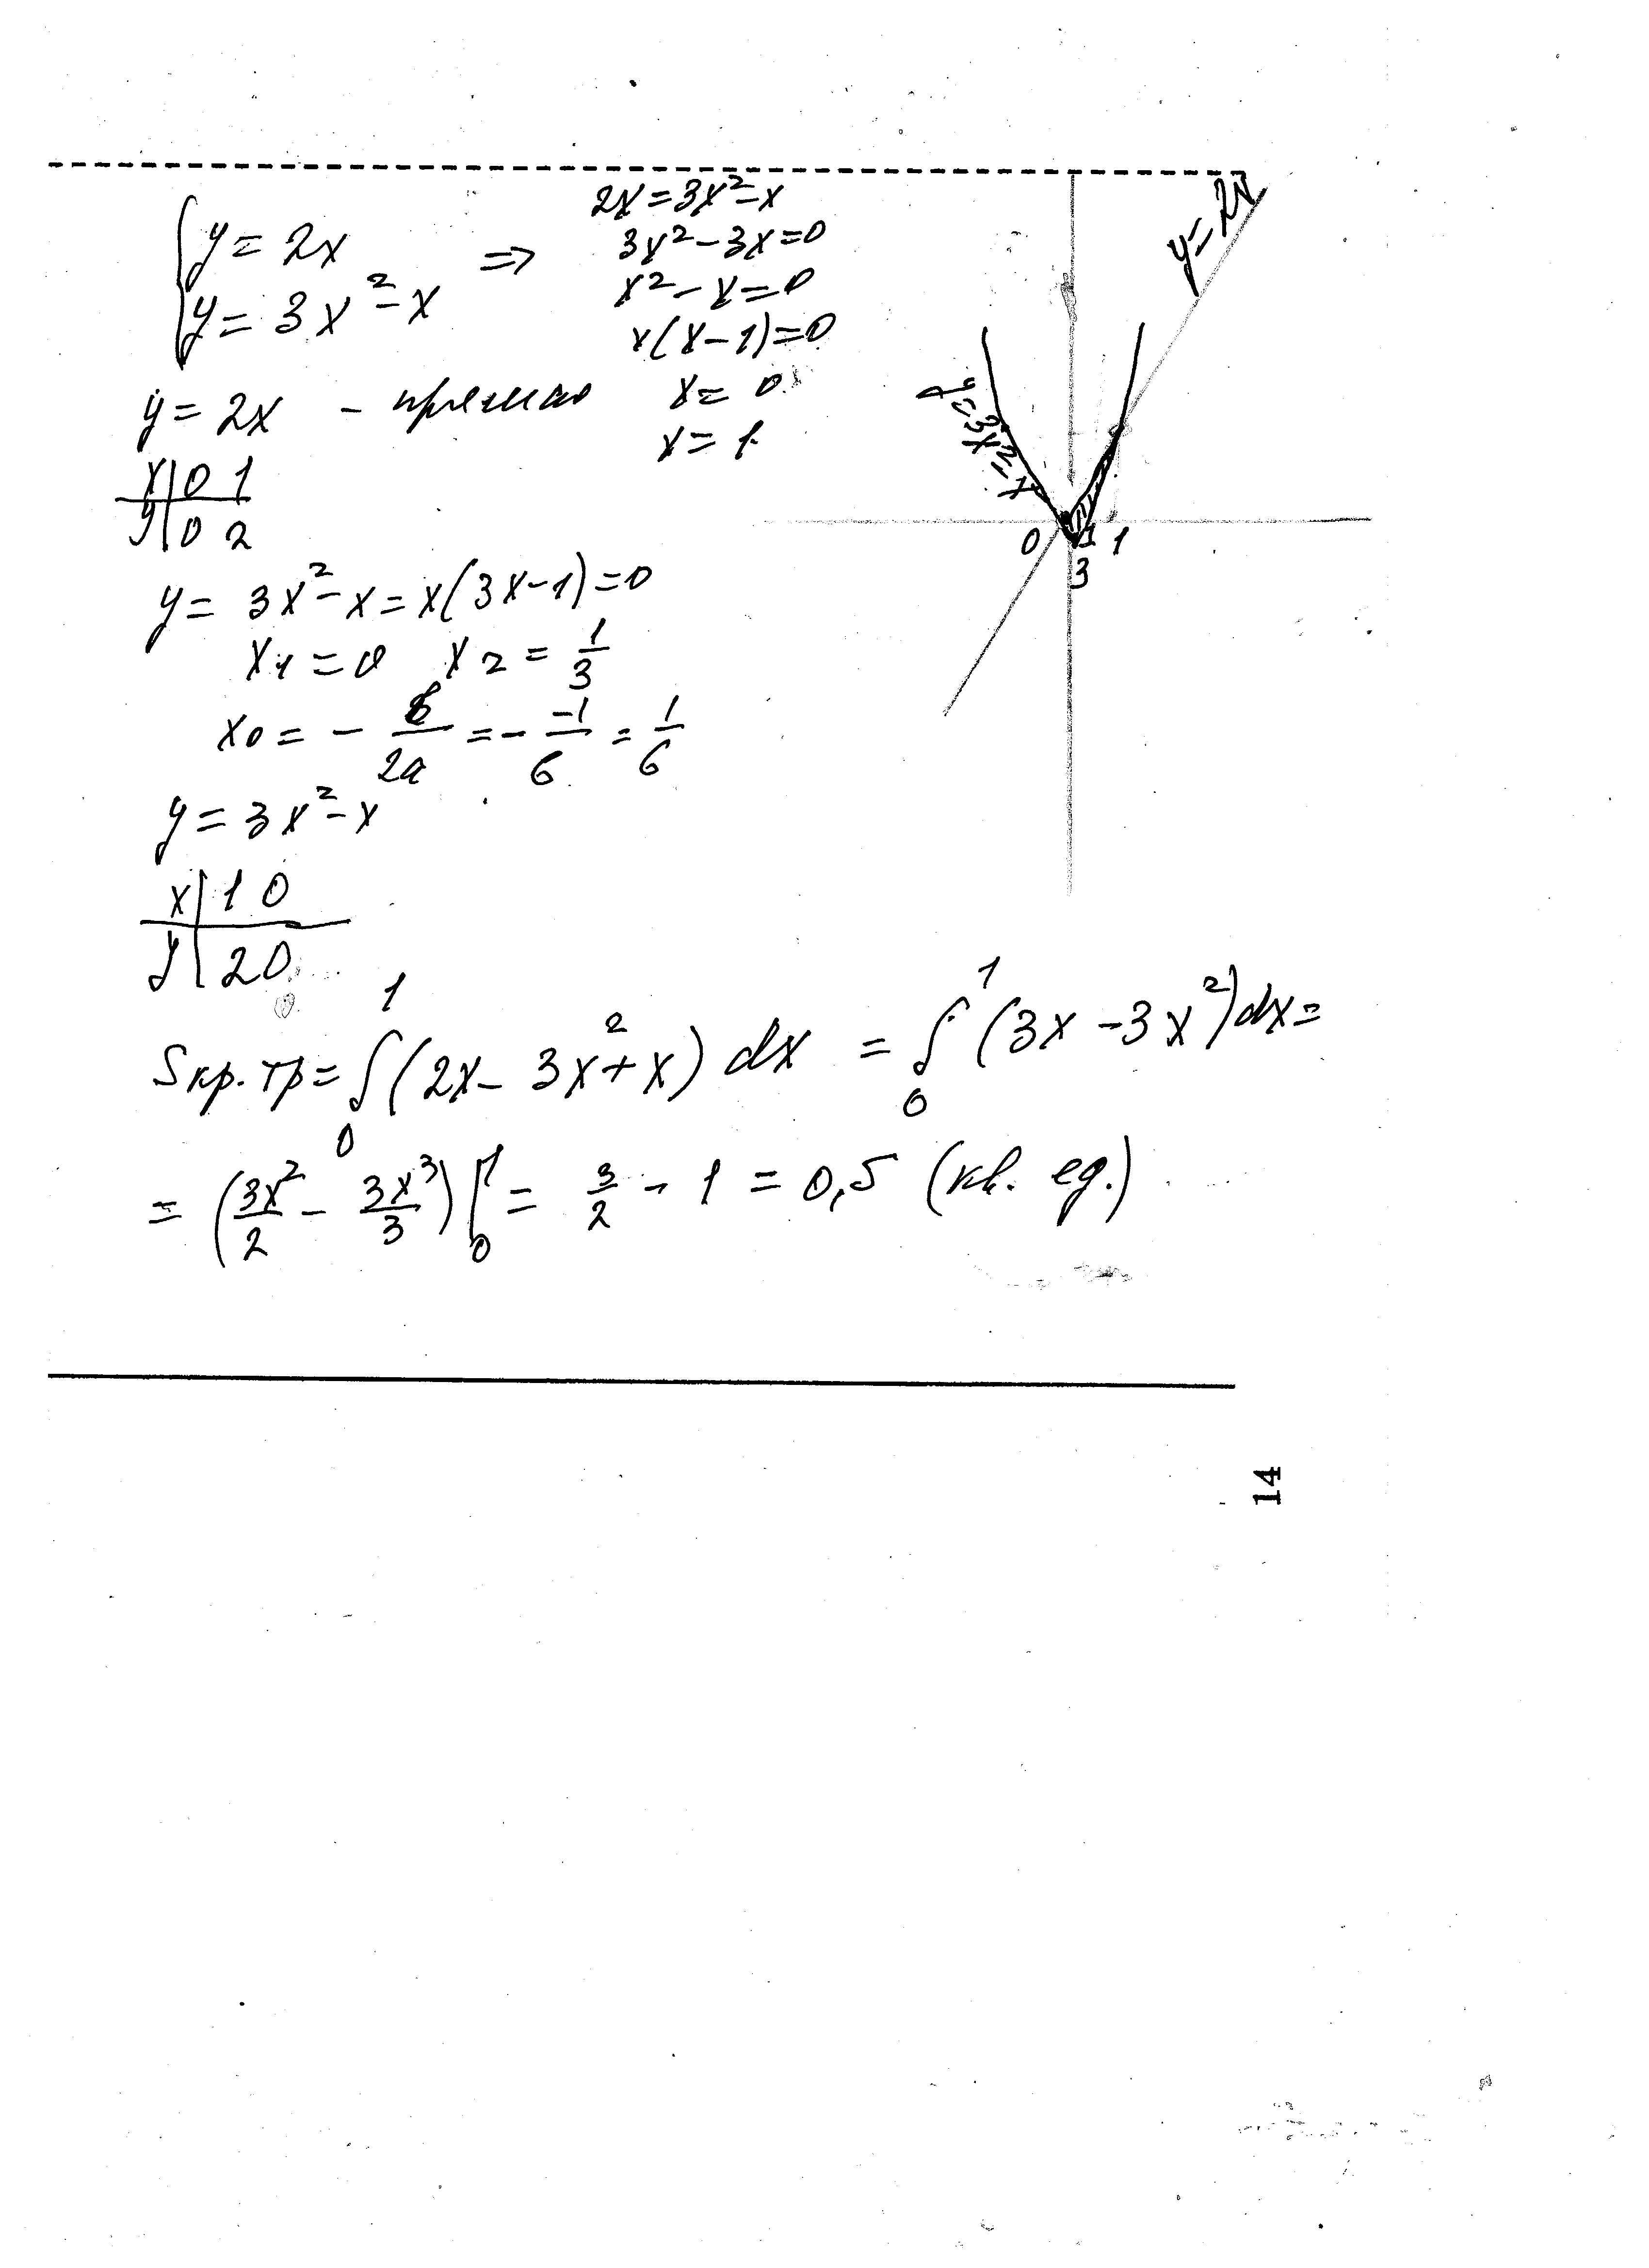 { y = 2x
y = 3x² - x
⇒
2x = 3x² - x
3x² - 3x = 0
x² - x = 0
x(x - 1) = 0
x = 0
x = 1
y = 2x - прямая
x | 0 1
y | 0 2
y = 3x² - x = x(3x - 1) = 0
x1 = 0 x2 = 1/3
x0 = - b/2a = - -1/6 = 1/6
y = 3x² - x
x | 1 0
y | 2 0
y = 2x
y = 3x² - x
0 1/3 1
Sкр.тр = ∫₀¹ (2x - 3x² + x) dx = ∫₀¹ (3x - 3x²) dx =
= (3x²/2 - 3x³/3) |₀¹ = 3/2 - 1 = 0,5 (кв. ед.)
14